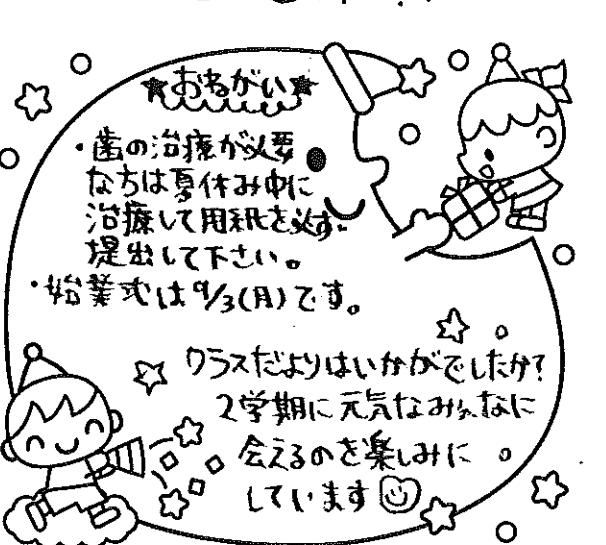 ★おねがい★
・歯の治療が必要
なうちは夏休み中に
治療して用紙を必ず
提出して下さい。
・始業式は9/3(月)です。
クラスだよりはいかがでしたか?
2学期に元気なみんなに
会えるのを楽しみに
しています